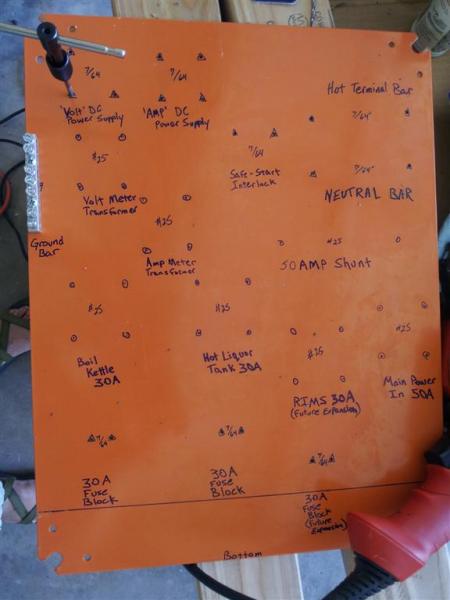 7/64
7/64
'Volt' DC
Power Supply
'AMP' DC
Power Supply
Hot Terminal Bar
7/64"
#25
7/64
Safe-Start
Interlock
7/64"
Volt Meter
Transformer
NEUTRAL BAR
#25
Ground
Bar
Amp Meter
Transformer
#25
50 AMP Shunt
#25
#25
#25
Boil
Kettle
30A
Hot Liquor
Tank 30A
#25
RIMS 30A
(Future Expansion)
Main Power
In 50A
7/64
7/64
7/64
30A
Fuse
Block
30A
Fuse
Block
30A
Fuse
Block
(Future
Expansion)
Bottom